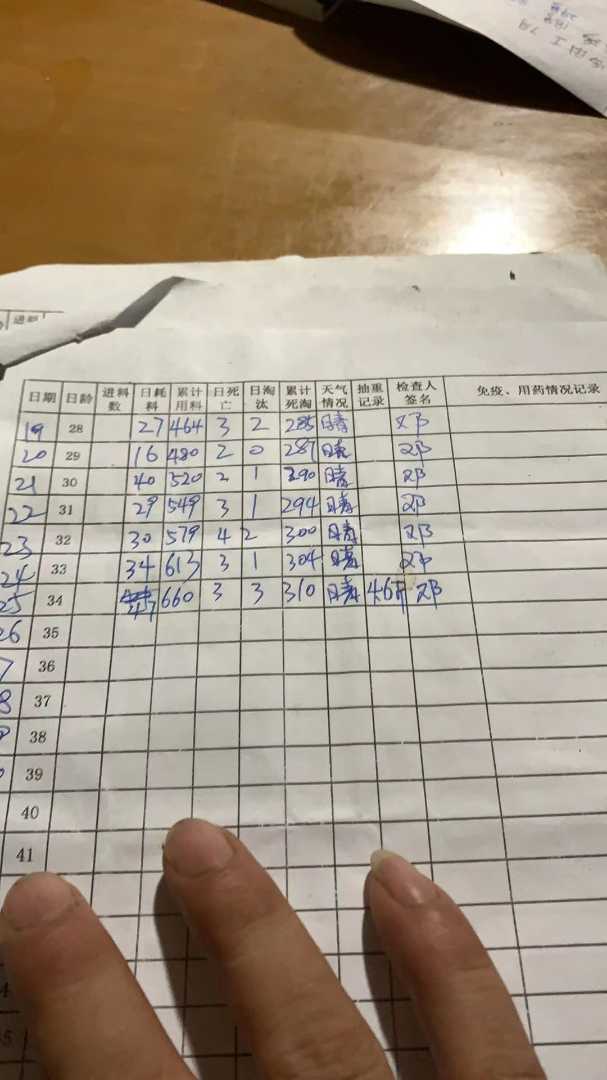 进料
日期 日龄 进料数 日耗料 累计用料 日死亡 日淘汰 累计死淘 天气情况 抽重记录 检查人签名 免疫、用药情况记录
19 28 27 464 3 2 285 晴 邓
20 29 16 480 2 0 287 晴 邓
21 30 40 520 2 1 290 晴 邓
22 31 29 549 3 1 294 晴 邓
23 32 30 579 4 2 300 晴 邓
24 33 34 613 3 1 304 晴 邓
25 34 47 660 3 3 310 晴 邓
26 35
7 36
8 37
38
39
40
41